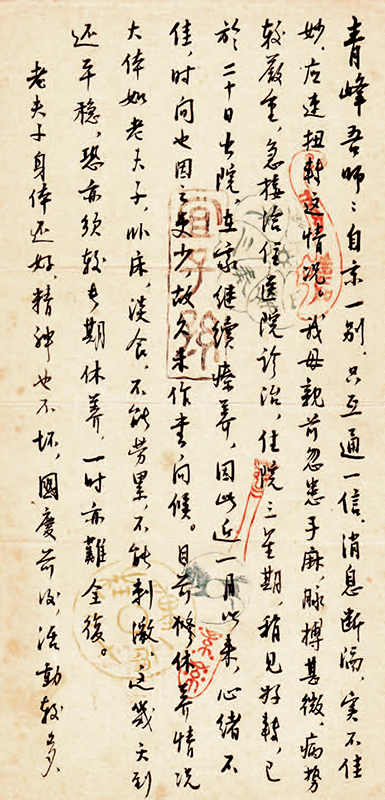 青峰吾师：自京一别，只互通一信，消息断隔，实不佳
妙，应速扭转这情况。我母亲前忽患手麻，脉搏甚微，病势
较严重，急接洽住医院诊治，住院三星期，稍见好转，已
於二十日出院，在家继续疗养，因此近一月以来，心绪不
佳，时间也因之更少，故久未作书，问候。目前，修休养情况
大体如老夫子，卧床，淡食，不能劳累，不能刺激，这几天到
还平稳，恐亦须较长期休养，一时亦难全復。
老夫子身体还好，精神也不坏，国庆前后，活动较多，
宜子孙